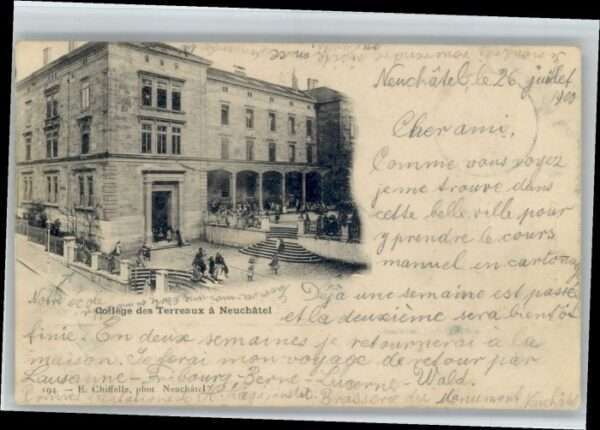 Neuchâtel, le 26 juillet
1900
Cher ami,
Comme vous voyez
je me trouve dans
cette belle ville pour
y prendre le cours
manuel en cartonag
Déjà une semaine est passé
et la deuxième sera bientôt
finie. En deux semaines je retournerai à la
maison. Je ferai mon voyage de retour par
Lausanne – Fribourg – Berne – Lucerne – Wald.
Notre école
Collège des Terreaux à Neuchâtel
194 — E. Chiffelle, phot. Neuchâtel
Brasserie du Monument Neuchâtel